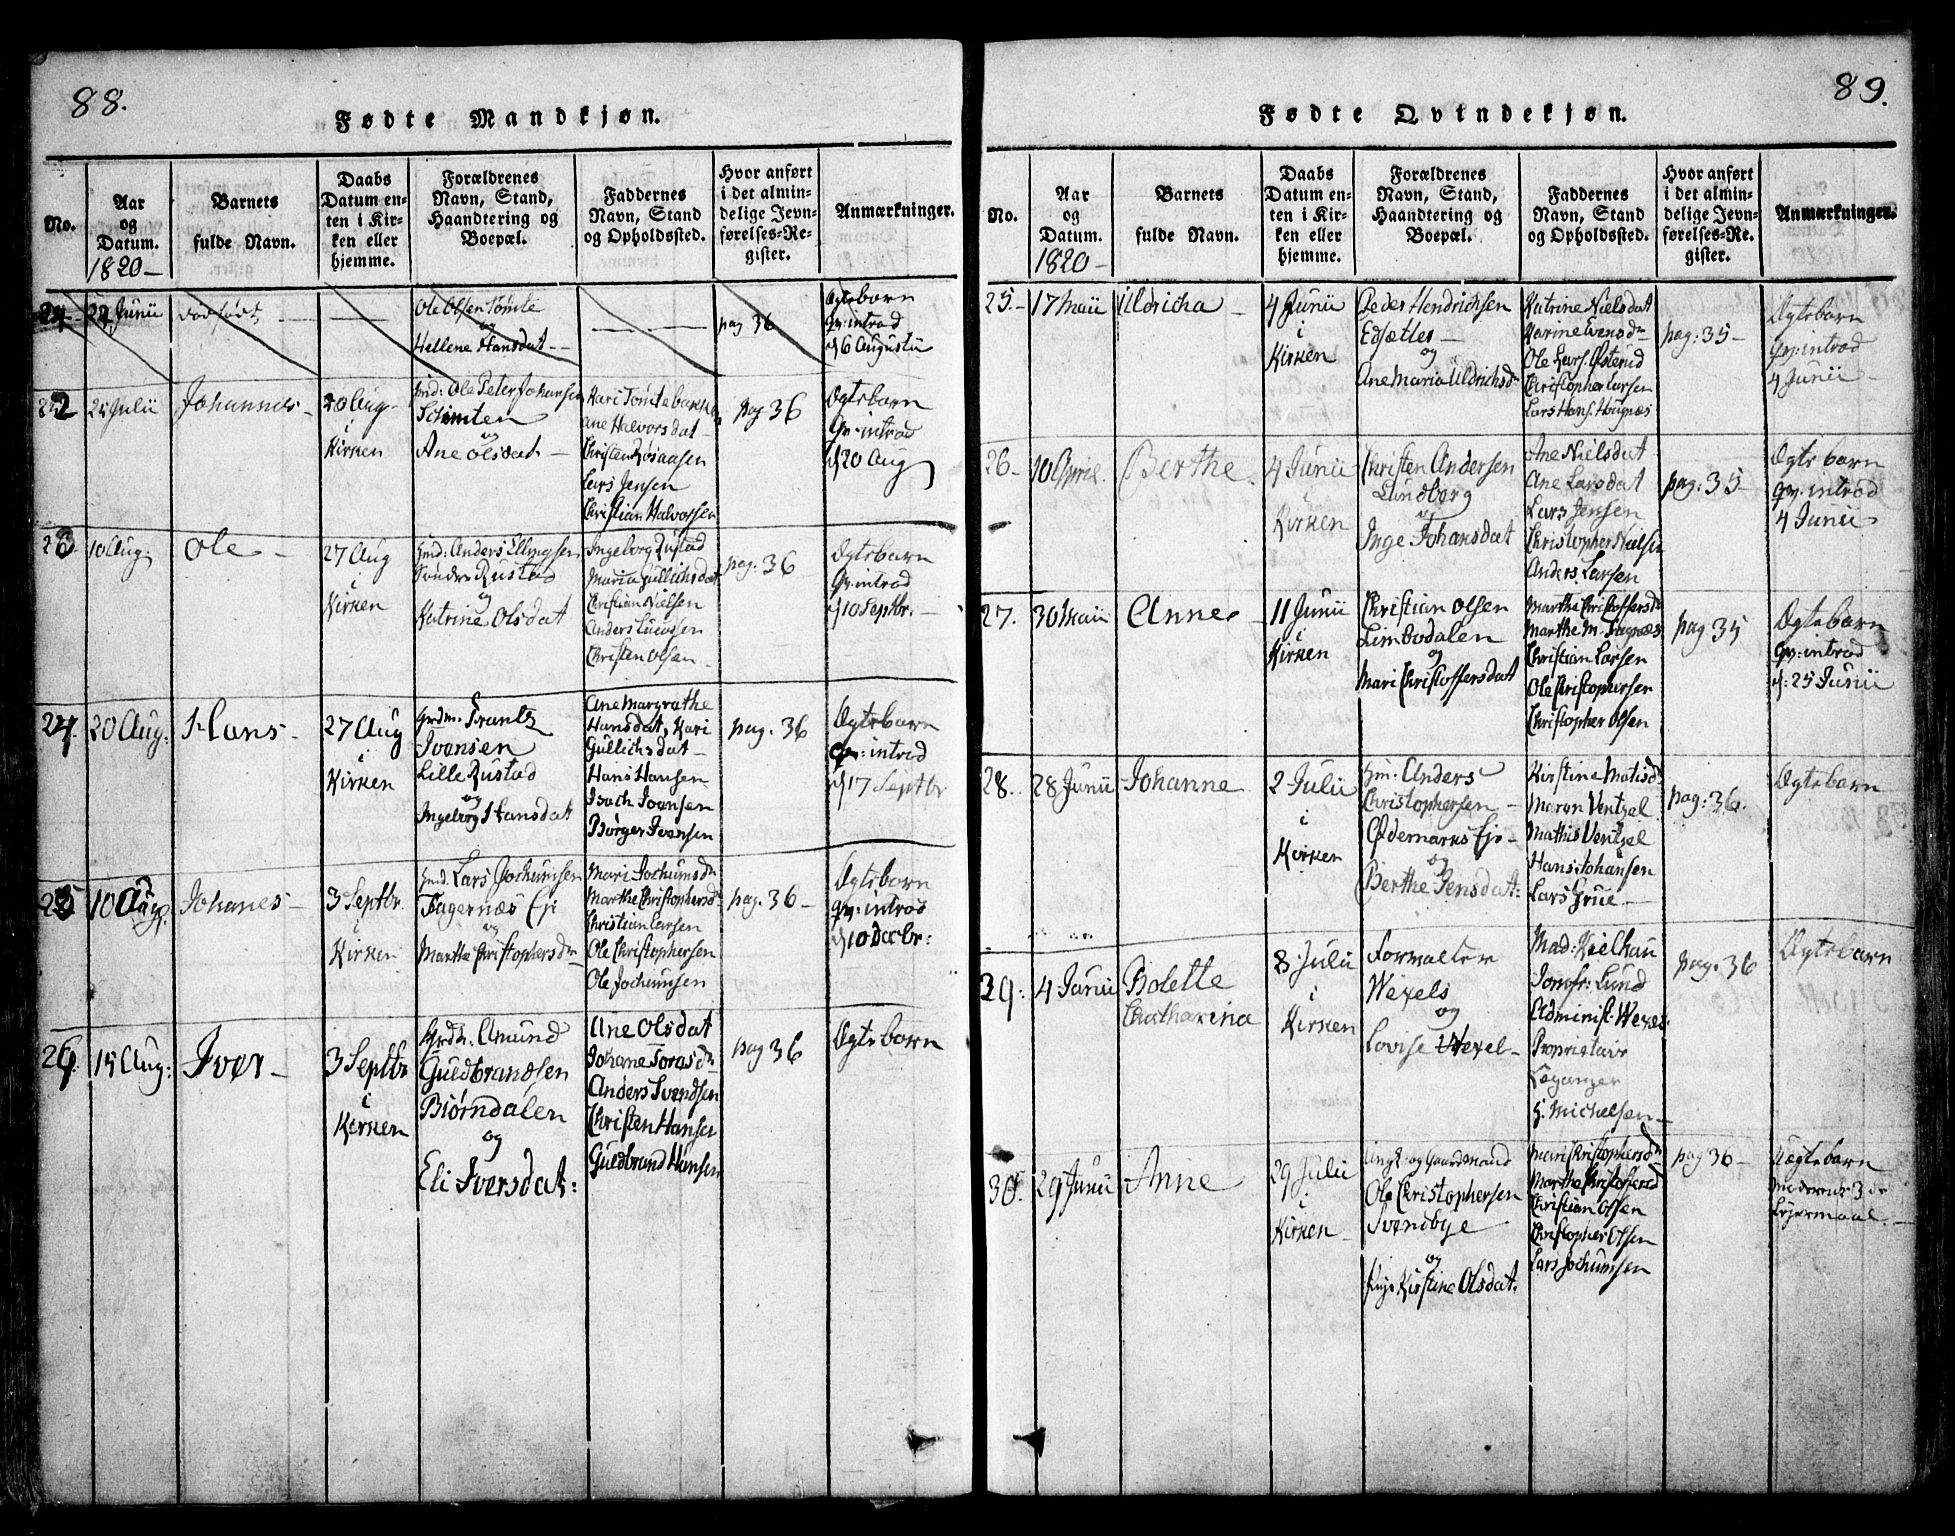 88.
Fødte Mandkjøn.
No.
Aar
og
Datum.
1820-
Barnets
fulde Navn.
Daabs
Datum en-
ten i Kir-
ken eller
hjemme.
Forældrenes
Navn, Stand,
Haandtering og
Boepæl.
Faddernes
Navn, Stand
og Opholdssted.
Hvor anført
i det almin-
delige Jevn-
førelses-Re-
gister.
Anmærkninger.
22 Junii
dødfødt
Ole Olsen Tømte
og
Hellene Hansdat-
pag 36
Ægtebarn
Qv: introd
d 6 Augustii
22
25 Julii
Johannes-
20 Aug-
i
Kirken
Gmd: Ole Peter Johansen
og
Ane Olsdat-
Kari Tømtebakken
Ane Halvorsdat-
Christen
Lars Jensen
Christian Halvorsen
pag 36
Ægtebarn
Qv: introd
d 20 Aug
23
10 Aug:
Ole-
27 Aug
i
Kirken
Gmd: Anders Ellingsen
Søndre Rustad
og
Katrine Olsdat
Ingeborg Rustad
Maria Gullichsdat
Christian Nielsen
Anders
Christen Olsen-
pag: 36
Ægtebarn
Qv: introd
d 10 Septbr.-
24.
20 Aug:
Hans-
27 Aug
i
Kirken
Grdm. Frants
Iversen
Lille Rustad
og
Ingeborg Hansdat
Ane Margrethe
Hansdat, Kari
Gullichsdat-
Hans Hansen
Isach Iversen
Børger Iversen
pag. 36
Ægtebarn
Qv: introd
d 17 Septbr
25
10 Aug.
Johanes-
3 Septbr.
i
Kirken
Gmd. Lars Jochumsen
Fagernæs Ej:
og
Marthe Christophersdr
Mari Jochumsdr
Marthe Christophersdr
Christian Larsen
Ole Christophersen
Ole Jochumsen
pag. 36-
Ægtebarn
Qv: introd
d 10 Decbr:
26
15 Aug:
Iver-
3 Septbr
i
Kirken
Grdm. Amund
Guldbrandsen
Biørndalen
og
Eli Iversdat:
Ane Olsdat
Johane Torasdr
Anders Svendsen
Christen Hansen
Guldbrand Hansen
pag 36
Ægtebarn
89.
Fødte Qvindekjøn.
No.
Aar
og
Datum.
1820-
Barnets
fulde Navn.
Daabs
Datum en-
ten i Kir-
ken eller
hjemme.
Forældrenes
Navn, Stand,
Haandtering og
Boepæl.
Faddernes
Navn, Stand
og Opholdssted.
Hvor anført
i det almin-
delige Jevn-
førelses-Re-
gister.
Anmærkninger.
25-
17 Maii
Uldricha
4 Junii
i
Kirken
Peder Hendrichsen
Edsættes-
og
Ane Maria Uldrichsdr
Katrine Nielsdat
Karine Evensdr
Ole Lars. Østerud
Christopher Larsen
Lars Hans. Haugnæs
pag: 35-
Ægtebarn
Qv: introd
4 Junii
26-
10 April.
Berthe
4 Junii
i
Kirken
Christen Andersen
Lundborg
og
Inge Johansdat
Ane Nielsdat
Ane Larsdat
Lars Jensen
Christopher Nielsen
Anders Larsen
pag: 35-
Ægte barn
Qv: introd
4 Junii
27.
30 Maii
Anne-
11 Junii
i
Kirken
Christian Olsen
Limbodalen
og
Mari Christoffersdat
Marthe Christoffersdr
Marthe M. Fagnæs
Christian Larsen
Ole Christophersen
Christopher Olsen
pag 35
Ægtebarn
Qv: introd
d: 25 Junii
28.
28 Junii
Johanne
2 Julii
i
Kirken
Gm: Anders
Christophersen-
Ødemarks Ej-
og
Berthe Jensdat:
Kirstine Matisdr
Maren Ventzel
Mathis Ventzel
Hans Johansen
Lars Grue-
pag: 36.
Ægtebarn
29:
4 Junii
Bolette
Chatharina
8 Julii
i
Kirken
Formalter
Wexels
og
Lovise Wexel-
Mad: Keilhau
Jomfr: Lund
Administ: Wexel
Proprietair
Løganger
H: Michelsen-
pag: 36
Ægtebarn
30.
29 Junii
Anne
29 Julii
i
Kirken-
Ungk. og Gaardmand
Ole Christophersen
Svendbye
og
Pige Kirstine Olsdat.
Mari Christophersdr
Marthe Christoffersd
Christian Olsen
Christopher Olsen
Lars Jochumsen
pag 36-
Uægtebarn
Moderens 3 de
Lejermaal.-